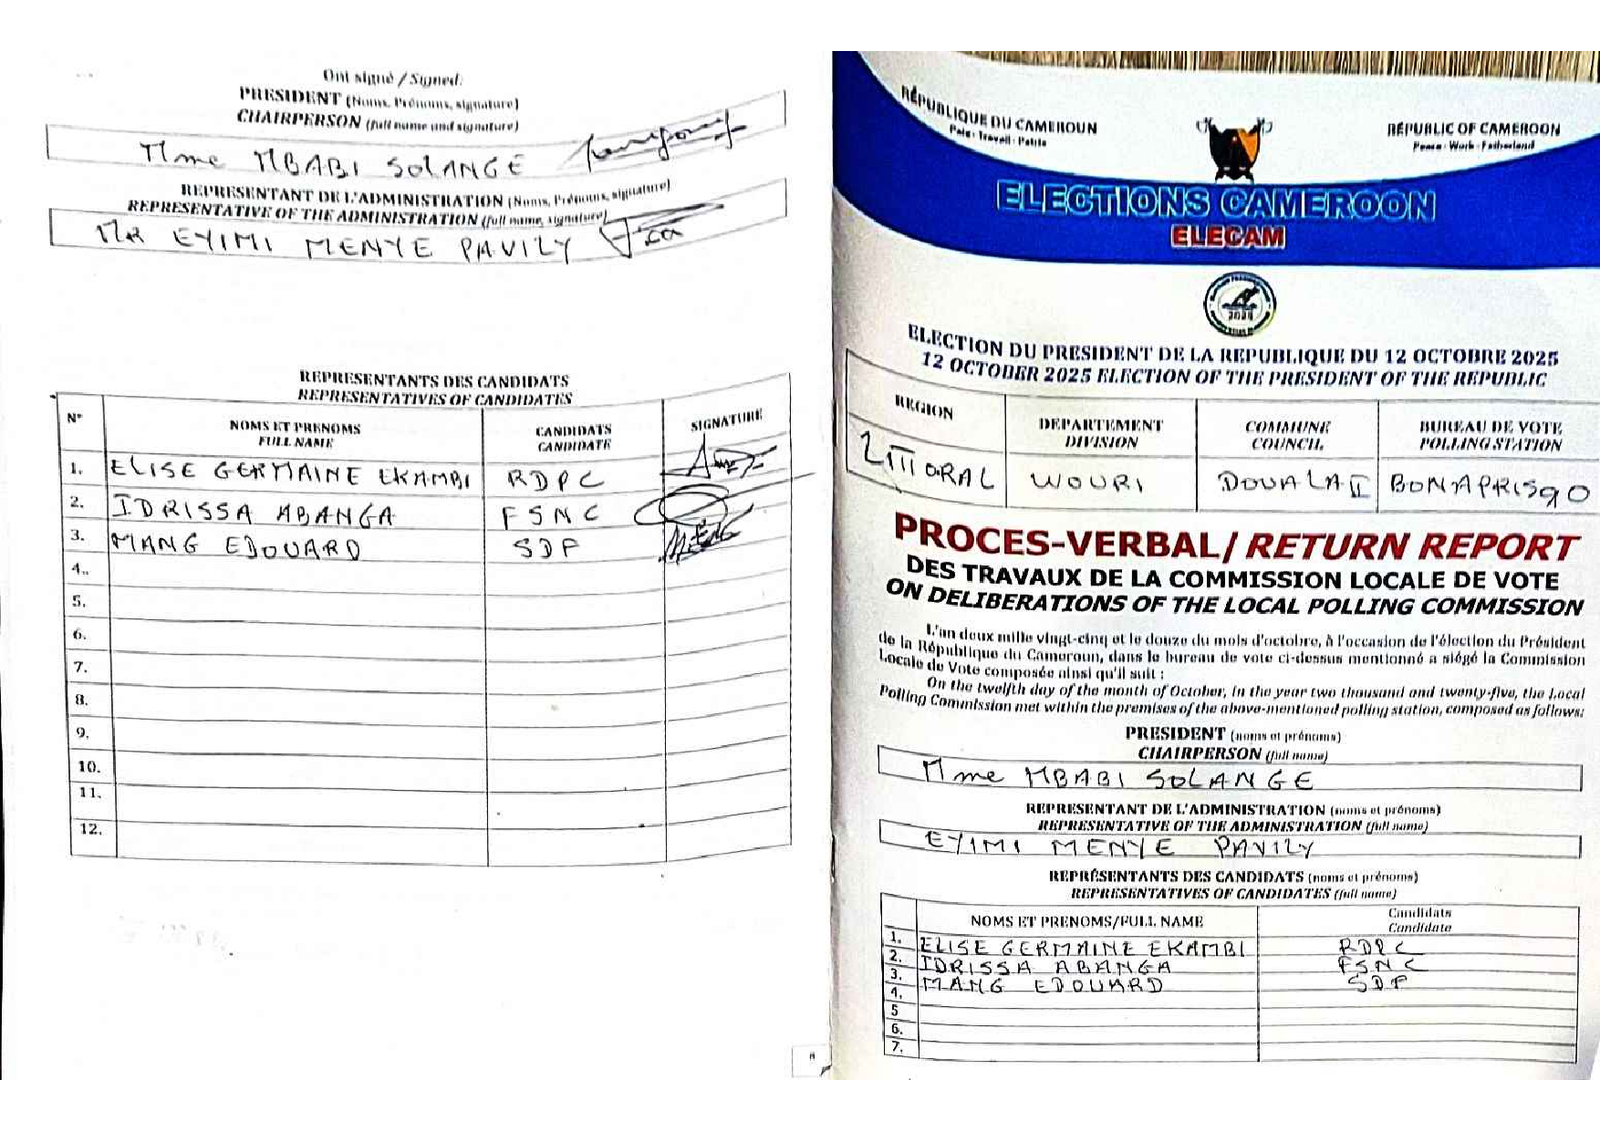 Ont signé / Signed.
PRESIDENT (Noms, Prénoms, signature)
CHAIRPERSON (full name and signature)
Mme MBABI SOLANGE
REPRESENTANT DE L'ADMINISTRATION (Noms, Prénoms, signature)
REPRESENTATIVE OF THE ADMINISTRATION (full name, signature)
MR EYIMI MENYE PAVILY
REPRESENTANTS DES CANDIDATS
REPRESENTATIVES OF CANDIDATES
N° NOMS ET PRENOMS FULL NAME CANDIDATS CANDIDATE SIGNATURE
1. ELISE GERMAINE EKAMBI RDPC
2. IDRISSA ABANGA FSNC
3. MANG EDOUARD SDF
4..
5.
6.
7.
8.
9.
10.
11.
12.
RÉPUBLIQUE DU CAMEROUN
Paix - Travail - Patrie
REPUBLIC OF CAMEROON
Peace - Work - Fatherland
ELECTIONS CAMEROON
ELECAM
ELECTION DU PRESIDENT DE LA REPUBLIQUE DU 12 OCTOBRE 2025
12 OCTOBER 2025 ELECTION OF THE PRESIDENT OF THE REPUBLIC
REGION DEPARTEMENT DIVISION COMMUNE COUNCIL BUREAU DE VOTE POLLING STATION
LITTORAL WOURI DOUALA II BONAPRISO
PROCES-VERBAL / RETURN REPORT
DES TRAVAUX DE LA COMMISSION LOCALE DE VOTE
ON DELIBERATIONS OF THE LOCAL POLLING COMMISSION
L'an deux mille vingt-cinq et le douze du mois d'octobre, à l'occasion de l'élection du Président
de la République du Cameroun, dans le bureau de vote ci-dessus mentionné a siégé la Commission
Locale de Vote composée ainsi qu'il suit :
On the twelfth day of the month of October, in the year two thousand and twenty-five, the Local
Polling Commission met within the premises of the above-mentioned polling station, composed as follows:
PRESIDENT (noms et prénoms)
CHAIRPERSON (full name)
Mme MBABI SOLANGE
REPRESENTANT DE L'ADMINISTRATION (noms et prénoms)
REPRESENTATIVE OF THE ADMINISTRATION (full name)
EYIMI MENYE PAVILY
REPRÉSENTANTS DES CANDIDATS (noms et prénoms)
REPRESENTATIVES OF CANDIDATES (full name)
NOMS ET PRENOMS/FULL NAME Candidats Candidate
1. ELISE GERMAINE EKAMBI RDPC
2. IDRISSA ABANGA FSNC
3. MANG EDOUARD SDF
4.
5
6.
7.